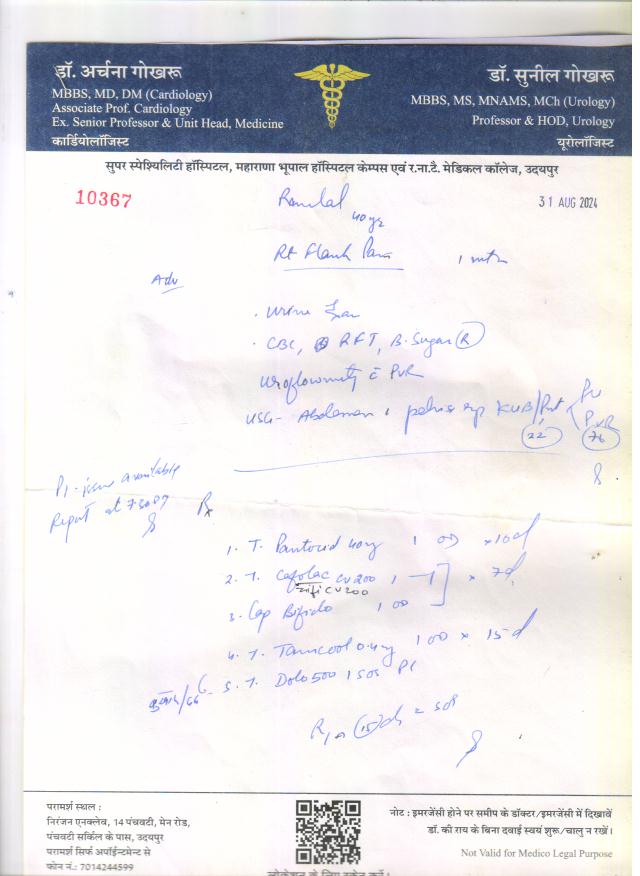 डॉ. अर्चना गोखरू
MBBS, MD, DM (Cardiology)
Associate Prof. Cardiology
Ex. Senior Professor & Unit Head, Medicine
कार्डियोलॉजिस्ट
डॉ. सुनील गोखरू
MBBS, MS, MNAMS, MCh (Urology)
Professor & HOD, Urology
यूरोलॉजिस्ट
सुपर स्पेश्यिलिटी हॉस्पिटल, महाराणा भूपाल हॉस्पिटल केम्पस एवं र.ना.टै. मेडिकल कॉलेज, उदयपुर
10367
31 AUG 2024
Ramlal
40 yrs
Rt Flank Pain 1 mth
Adv
. Urine
. CBC, RFT, B. Sugar (R)
Uroflowmetry c̄ PVR
USG - Abdomen & pelvis KUB/Prt
PVR
22
76
available
Report at 7:30
Rx
1. T. Pantocid 40mg 1 OD x 10d
2. T. Cefolac CV200 1 — 1 x 7d
CV200
3. Cap Bifido 1 OD
4. T. Tamcool 0.4mg 1 OD x 15d
5. T. Dolo 500 1 SOS
15 d SOS
परामर्श स्थल :
निरंजन एनक्लेव, 14 पंचवटी, मेन रोड,
पंचवटी सर्किल के पास, उदयपुर
परामर्श सिर्फ अपॉईन्टमेन्ट से
फोन नं.: 7014244599
नोट : इमरजेंसी होने पर समीप के डॉक्टर/इमरजेंसी में दिखावें
डॉ. की राय के बिना दवाई स्वयं शुरू/चालु न रखें।
Not Valid for Medico Legal Purpose
लोकेशन के लिए स्केन करें।